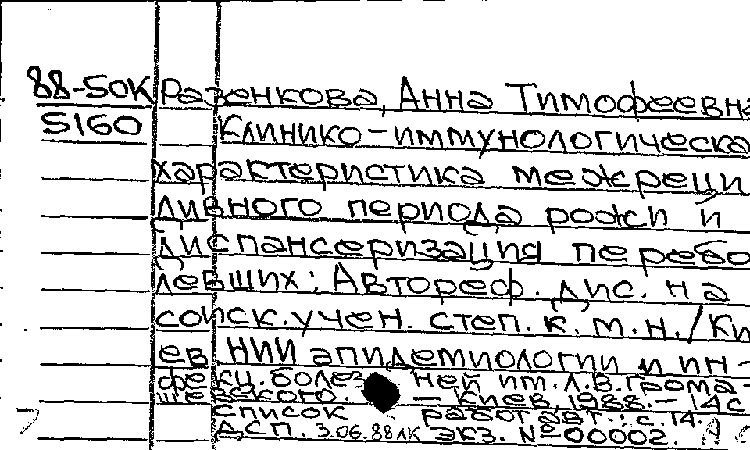 88-50К Разенкова, Анна Тимофеевна
5160 Клинико-иммунологическа
характеристика межреци
дивного периода рожи и
диспансеризация перебо
левших: Автореф. дис. на
соиск. учен. степ. к. м. н. / Ки
ев. НИИ эпидемиологии и ин-
фекц. болез ней им. Л. В. Грома-
шевского. — Киев, 1988. — 14с
Список работ авт.: с. 14.
ДСП. 3.06.88 ЛК ЭКЗ. №00002.